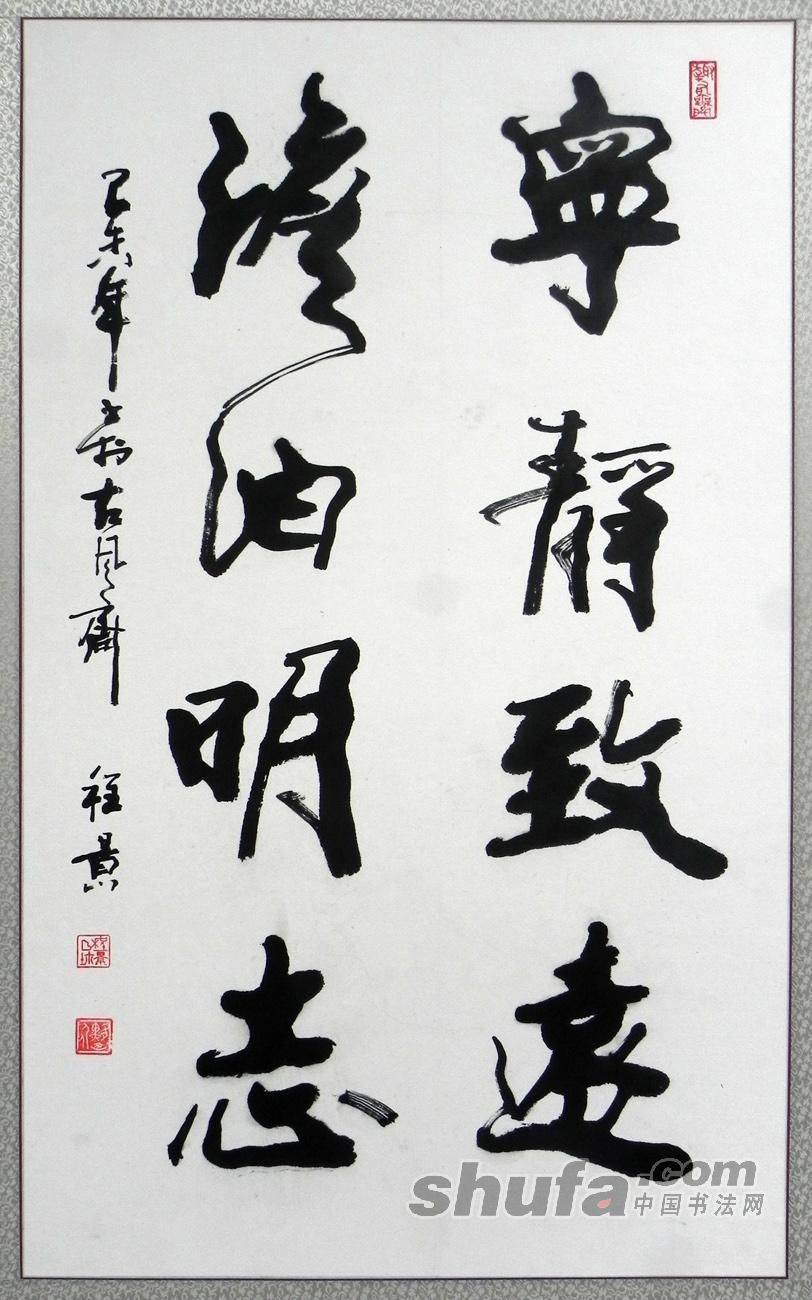 寧靜致遠
澹泊明志
己未年书於古风斋 程景
shufa.com
中国书法网